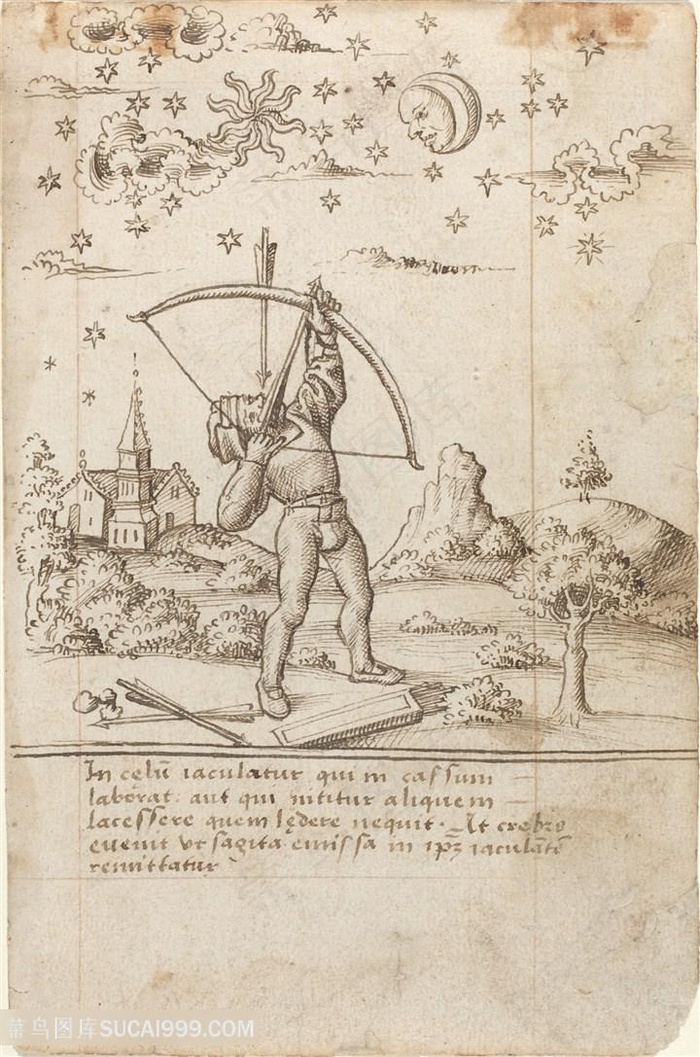 In cęlū iaculatur qui in cassum
laborat: aut qui nititur aliquem
lacessere quem lędere nequit. At crebro
euenit vt sagita emissa in ipꝫ iaculātē
remittatur
菜鸟图库SUCAI999.COM